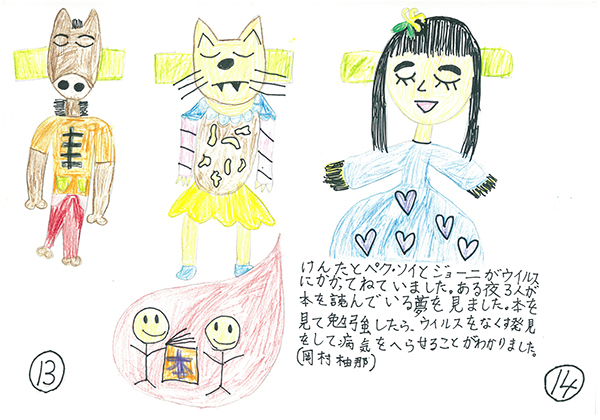 けんたとペク・ソイとジョーニがウイルス
にかかってねていました。ある夜3人が
本を読んでいる夢を見ました。本を
見て勉強したら、ウイルスをなくす発見
をして、病気をへらせることがわかりました。
(岡村柚那)
本
⑬
⑭